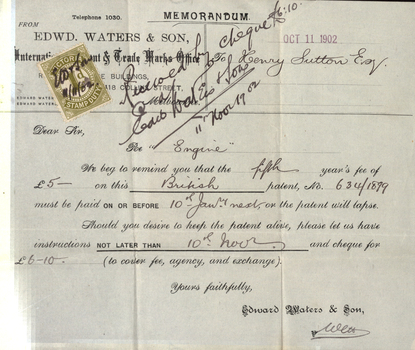 Telephone 1030. MEMORANDUM.
FROM
EDWD. WATERS & SON,
International Patent & Trade Marks Office
OCT 11 1902
To Henry Sutton Esq.
BUILDINGS,
418 COLLINS STREET,
EDWARD WATERS
EDWARD WATERS
VICTORIA
STAMP DUTY
Received by cheque £6.10
Edwd Waters & Son
11 Novr 1902
Dear Sir,
Re "Engine"
We beg to remind you that the fifth year's fee of
£5— on this British patent, No. 634/1879
must be paid ON OR BEFORE 10th Jany next, or the patent will lapse.
Should you desire to keep the patent alive, please let us have
instructions NOT LATER THAN 10th Novr and cheque for
£6-10- (to cover fee, agency, and exchange).
Yours faithfully,
Edward Waters & Son,